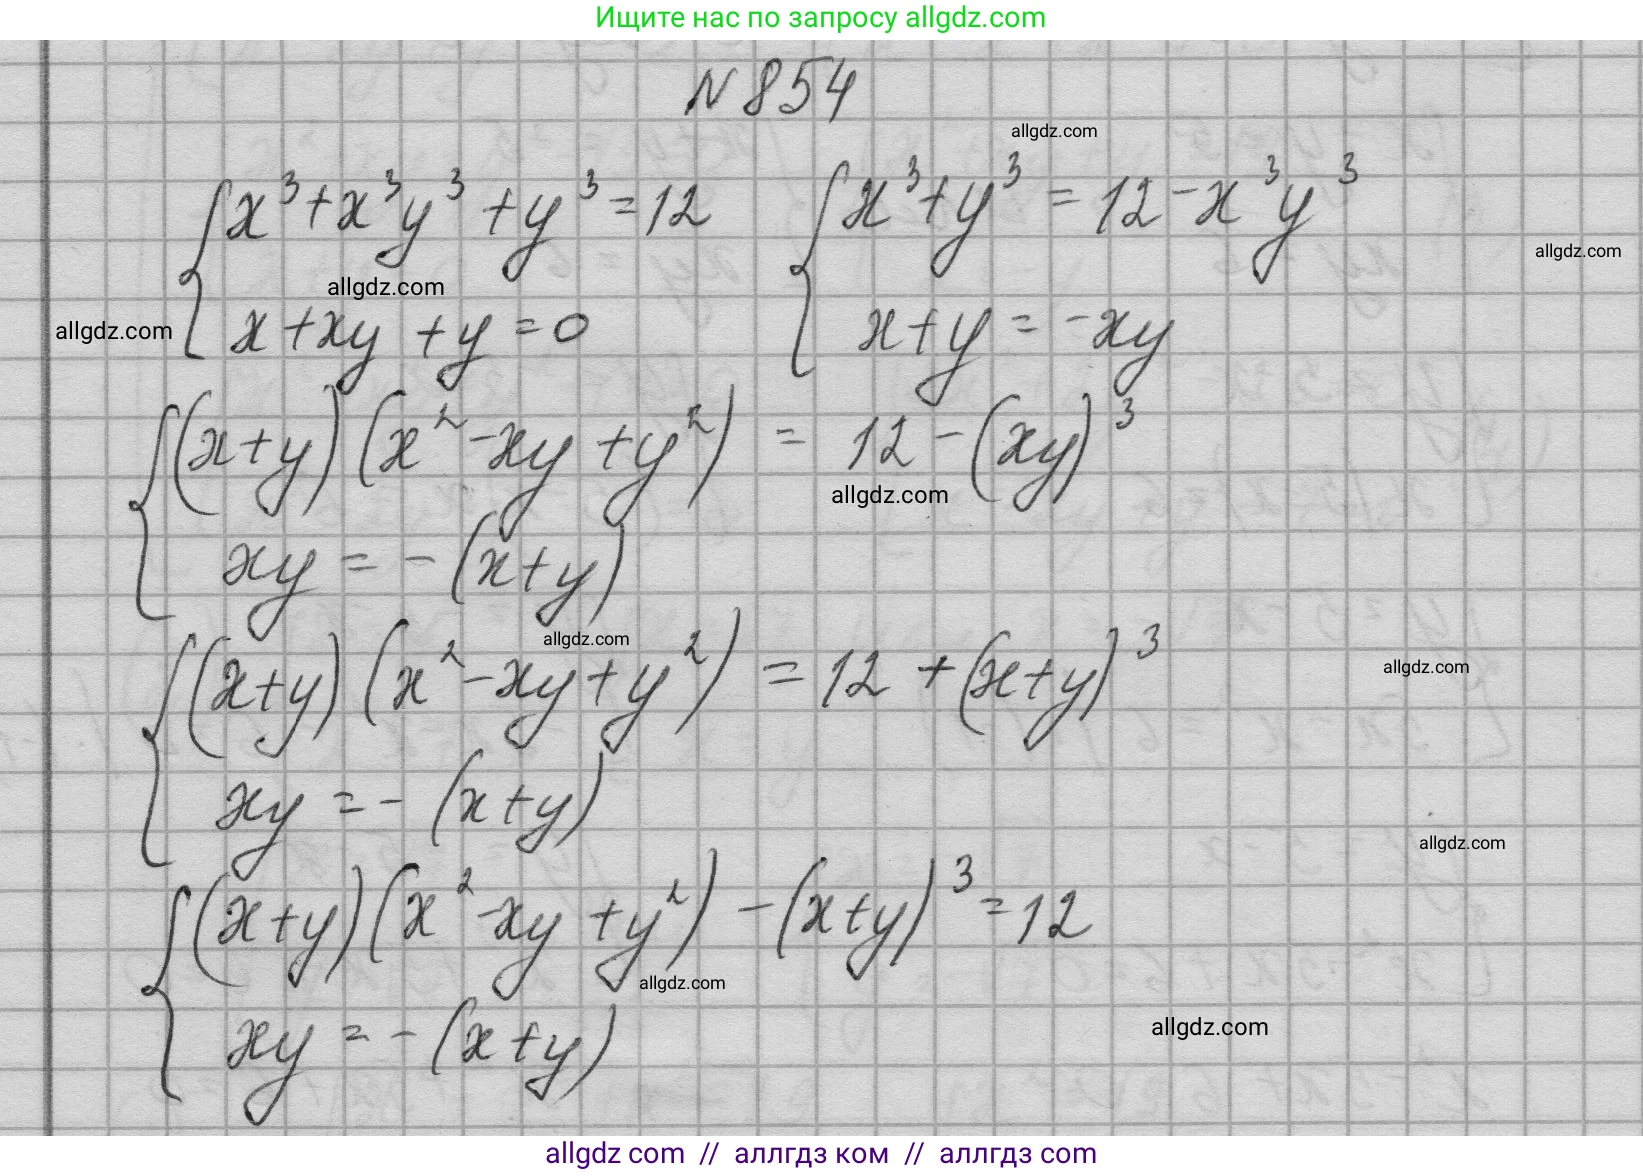 Ищите нас по запросу allgdz.com
N 854
allgdz.com
{ x³ + x³y³ + y³ = 12 { x³ + y³ = 12 - x³y³
allgdz.com
allgdz.com
allgdz.com
x + xy + y = 0 x + y = -xy
{ (x+y)(x² - xy + y²) = 12 - (xy)³
allgdz.com
xy = -(x+y)
allgdz.com
{ (x+y)(x² - xy + y²) = 12 + (x+y)³
allgdz.com
xy = -(x+y)
allgdz.com
{ (x+y)(x² - xy + y²) - (x+y)³ = 12
allgdz.com
allgdz.com
xy = -(x+y)
allgdz com // аллгдз ком // аллгдз com